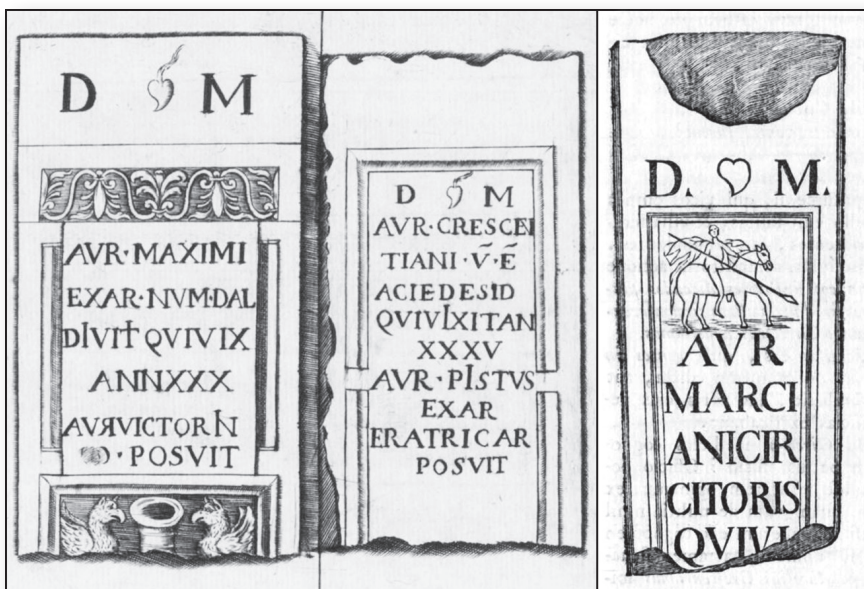 D M
AVR·MAXIMI
EXAR·NVM·DAL
DIVIT QVIVIX
ANNXXX
AVRVICTORIN
·POSVIT
D M
AVR·CRESCEN
TIANI·V̄·Ē
ACIEDESID
QVIVIXITAN
XXXV
AVR·PISTVS
EXAR
ERATRICAR
POSVIT
D. M.
AVR
MARCI
ANICIR
CITORIS
QVIVI